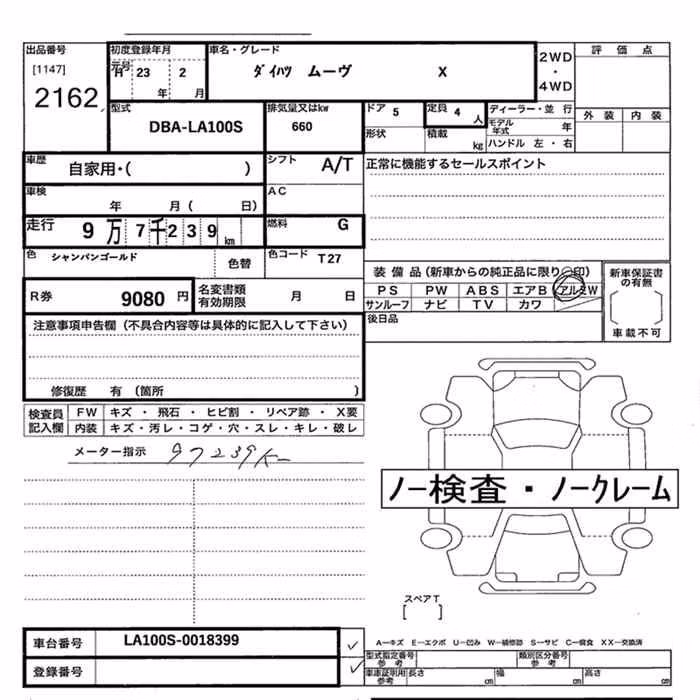 出品番号
[1147]
2162
初度登録年月
元号
H 23 2
年 月
車名・グレード
ダイハツ ムーヴ X
2WD
・
4WD
評 価 点
外 装 内 装
型式
DBA-LA100S
排気量又はkw
660
ドア 5
形状
定員 4 人
積載 kg
ディーラー・並 行
モデル年式 年
ハンドル 左・右
車歴
自家用・( )
シフト A/T
正常に機能するセールスポイント
車検
年 月( 日)
AC
走行 9万7千239 km
燃料 G
色 シャンパンゴールド 色替
色コード T27
装 備 品(新車からの純正品に限り○印)
PS PW ABS エアB アルミW
サンルーフ ナビ TV カワ
後日品
新車保証書
の有無
車載不可
R券 9080 円
名変書類
有効期限 月 日
注意事項申告欄(不具合内容等は具体的に記入して下さい)
修復歴 有 (箇所 )
検査員
記入欄
FW キズ ・ 飛石 ・ ヒビ割 ・ リペア跡 ・ X要
内装 キズ・汚レ・コゲ・穴・スレ・キレ・破レ
メーター指示 97239K
ノー検査・ノークレーム
スペアT
[ ]
車台番号 LA100S-0018399
登録番号
A−キズ E−エクボ U−凹み W−補修跡 S−サビ C−腐食 XX−交換済
型式指定番号
参 考
類別区分番号
参 考
車庫証明用
参考
長さ ㎝ 幅 ㎝ 高さ ㎝